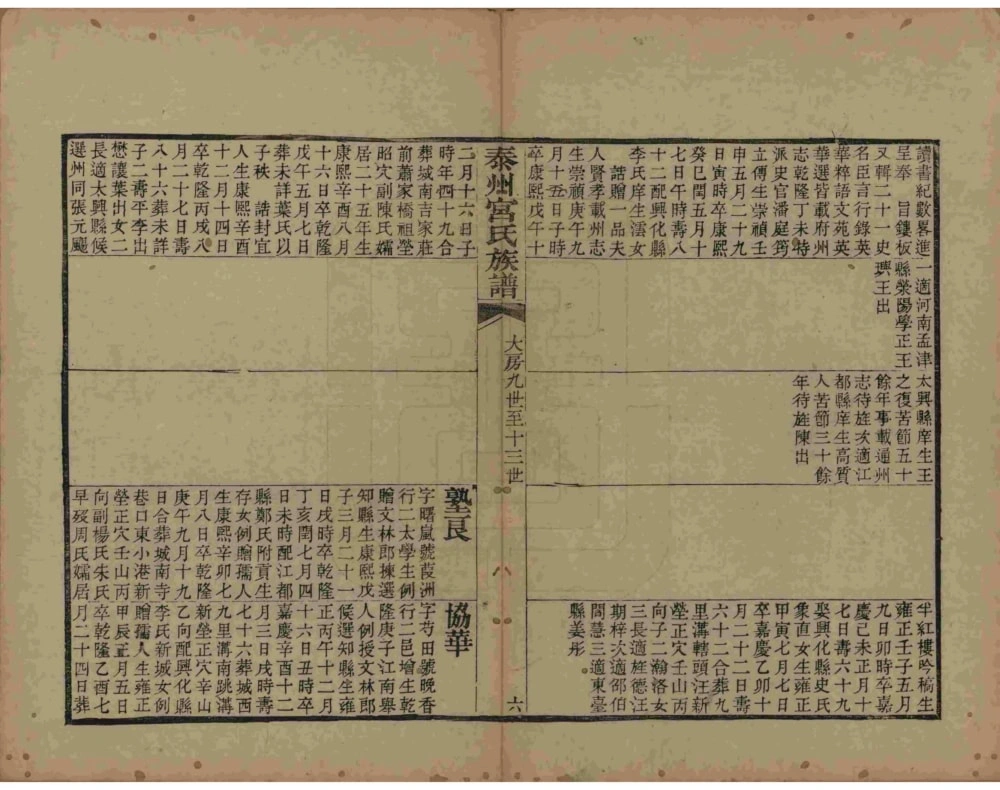 讀書紀數畧進
呈奉　旨鏤板
又輯二十一史
名臣言行錄英
華粹語文苑英
華選皆載府州
志乾隆丁未特
派史官潘庭筠
立傳生崇禎壬
申五月二十九
日寅時卒康熙
癸巳閏五月十
七日午時壽八
十二配興化縣
李氏庠生女
誥贈一品夫
人賢孝載州志
生崇禎庚午九
月十五日子時
卒康熙戊午十
一適河南孟津
縣滎陽學正王
王出
太興縣庠生王
之復苦節五十
餘年事載通州
志待旌次適江
都縣庠生高質
人苦節三十餘
年待旌陳出
半紅樓吟稿生
雍正壬子五月
九日卯時卒嘉
慶己未正月十
七日壽六十九
娶興化縣史氏
象直女生雍正
甲寅七月七日
卒嘉慶乙卯十
月二十二日壽
六十二合葬九
里溝轄頭汪新
塋正穴壬山丙
向子二瀚洛女
三長適旌德汪
期梓次適邵伯
閻慧三適東臺
縣姜彤
泰州宮氏族譜
大房九世至十三世
八
六
二月十六日子
時年四十九合
葬城南吉家莊
前蕭家橋祖塋
昭穴副陳氏孀
居二十五年生
康熙辛酉八月
十六日卒乾隆
戊午五月七日
葬未詳葉氏以
子秩　誥封宜
人生康熙辛酉
十二月十四日
卒乾隆丙戌八
月二十七日壽
八十六葬未詳
子二壽平李出
懋讓葉出女二
長適太興縣候
選州同張元颺
塾良
字曙嵐號葭洲
行二太學生例
贈文林郎揀選
知縣生康熙戊
子三月二十一
日戌時卒乾隆
丁亥閏七月四
日未時配江都
縣鄭氏附貢生
存女例贈孺人
生康熙辛卯七
月八日卒乾隆
庚午九月十九
日合葬城南寺
巷口東小港新
塋正穴壬山丙
向副楊氏朱氏
早歿周氏孀居
協華
字芍田號晚香
行二邑增生乾
隆庚子江南舉
人例授文林郎
候選知縣生雍
正丙午十二月
十六日丑時卒
嘉慶辛酉十二
月三日戌時壽
七十六葬城西
九里溝南跳溝
新塋正穴辛山
乙向配興化縣
李氏新城女例
贈孺人生雍正
甲辰正月五日
卒乾隆乙酉七
月二十四日葬